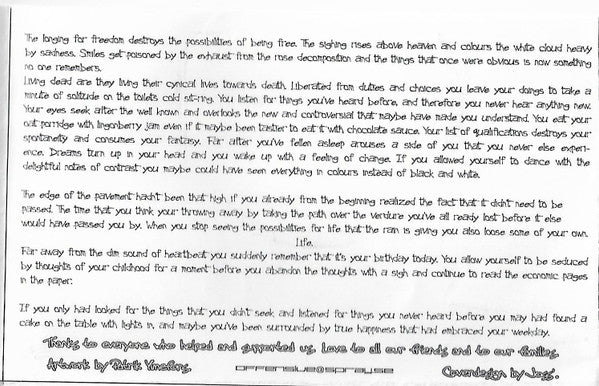 The longing for freedom destroys the possibilities of being free. The sighing rises above heaven and colours the white cloud heavy
by sadness. Smiles get poisoned by the exhaust from the rose decomposition and the things that once were obvious is now something
no one remembers.
Living dead are they living their cynical lives towards death. Liberated from duties and choices you leave your doings to take a
minute of solitude on the toilets cold sit-ring. You listen for things you've heard before, and therefore you never hear anything new.
Your eyes seek after the well known and overlooks the new and controversial that maybe have made you understand. You eat your
oat porridge with lingonberry jam even if it maybe been tastier to eat it with chocolate sauce. Your list of qualifications destroys your
spontaneity and consumes your fantasy. Far after you've fellen asleep arouses a side of you that you never else experi-
ence. Dreams turn up in your head and you wake up with a feeling of change. If you allowed yourself to dance with the
delightful notes of contrast you maybe could have seen everything in colours instead of black and white.
The edge of the pavement hadn't been that high if you already from the beginning realized the fact that it didn't need to be
passed. The time that you think your throwing away by taking the path over the verdure you've all ready lost before it else
would have passed you by. When you stop seeing the possibilities for life that the rain is giving you also loose some of your own
life.
Far away from the dim sound of heartbeat you suddenly remember that it's your birthday today. You allow yourself to be seduced
by thoughts of your childhood for a moment before you abandon the thoughts with a sigh and continue to read the economic pages
in the paper.
If you only had looked for the things that you didn't seek and listened for things you never heard before you may had found a
cake on the table with lights in, and maybe you've been surrounded by true happiness that had embraced your weekday.
Thanks to everyone who helped and supported us. Love to all our friends and to our families.
Artwork by Patrik. Coverdesign by Joss'.
offensive@sprause